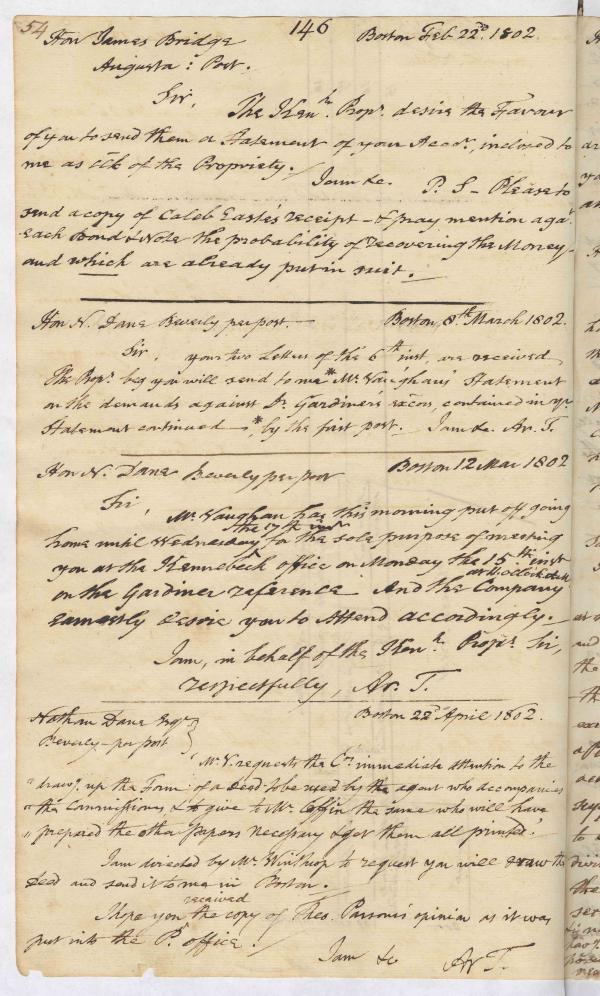 54 146
Hon James Bridge Boston Feb 22d. 1802.
Augusta : Post.
Sir,
The Kenh. Proprs. desire the Favour
of you to send them a Statement of your Accot., inclosed to
me as Clk of the Propriety./
I am &c. P. S - Please to
send a copy of Caleb East's receipt - & pray mention agat.
each Bond & Note the probability of recovering the Money -
and which are already put in suit.
Hon N. Dane Beverly per post. Boston, 8th March 1802.
Sir, your two Letters of the 6th inst, are received,
The Proprs. beg you will send to me * Mr. Vaughan's Statement
on the demands against Dr. Gardiner's excors, contained in yr.
Statement continued - * by the first post. I am &c. Ar. T.
Hon N. Dane Beverly per post Boston 12 Mar 1802
Sir,
Mr. Vaughan has this morning put off going
the 17th inst
home until Wednesday for the sole purpose of meeting
you at the Kennebeck office on Monday the 15th inst
at
on the Gardiner reference And the Company
earnestly desire you to Attend accordingly.
I am, in behalf of the Kenh. Proprs. Sir,
respectfully, Ar. T.
Nathan Dane Esqr. Boston 22d April 1802.
Beverly - per post
Mr. V. requests the Cs. immediate attention to the
" drawg. up the Form of a deed to be used by the agent who accompanies
" the Commissioners & to give to Mr. Coffin the same who will have
" prepared the other papers necessary & get them all printed."
I am directed by Mr. Winthrop to request you will draw the
deed and send it to me in Boston.
received
I hope you the copy of Theo. Parsons's opinion as it was
put into the Pt. office./
I am &c Ar T.